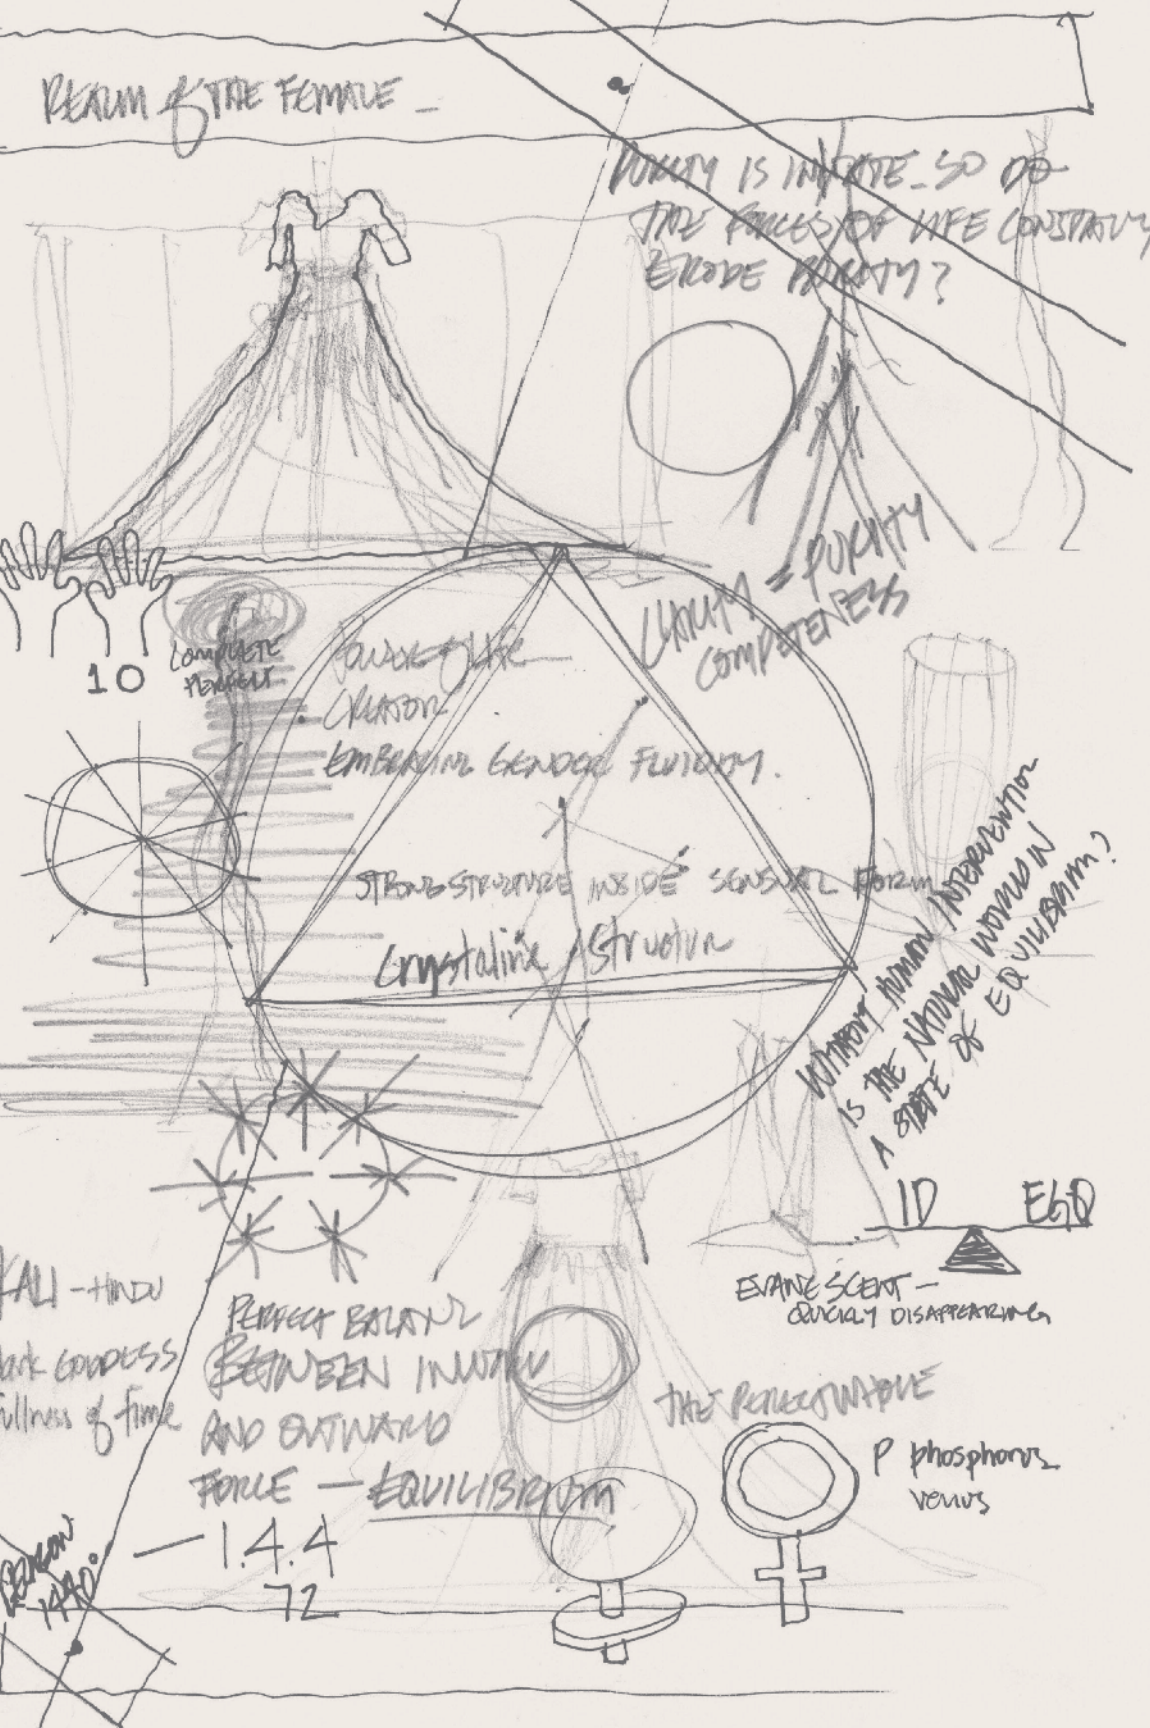 REALM of THE FEMALE -
PURITY IS INNATE - SO DO
THE FORCES OF LIFE CONSTANTLY
ERODE PURITY?
CLARITY = PURITY
COMPETENESS
10
COMPLETE
PERFECT
POWER of LIFE
CREATOR
EMBRACING GENDER FLUIDITY.
STRONG STRUCTURE INSIDE SENSUAL FORM
Crystaline Structur
WITHOUT HUMAN INTERVENTION
IS THE NATURAL WORLD IN
A STATE OF EQUILIBRIUM?
ID EGO
EVANESCENT -
QUICKLY DISAPPEARING
KALI - HINDU
dark GODDESS
fullness of time
PERFECT BALANCE
BETWEEN INWARD
AND OUTWARD
FORCE - EQUILIBRIUM
THE PERFECT WHOLE
P phosphorus
venus
- 1.4.4
72